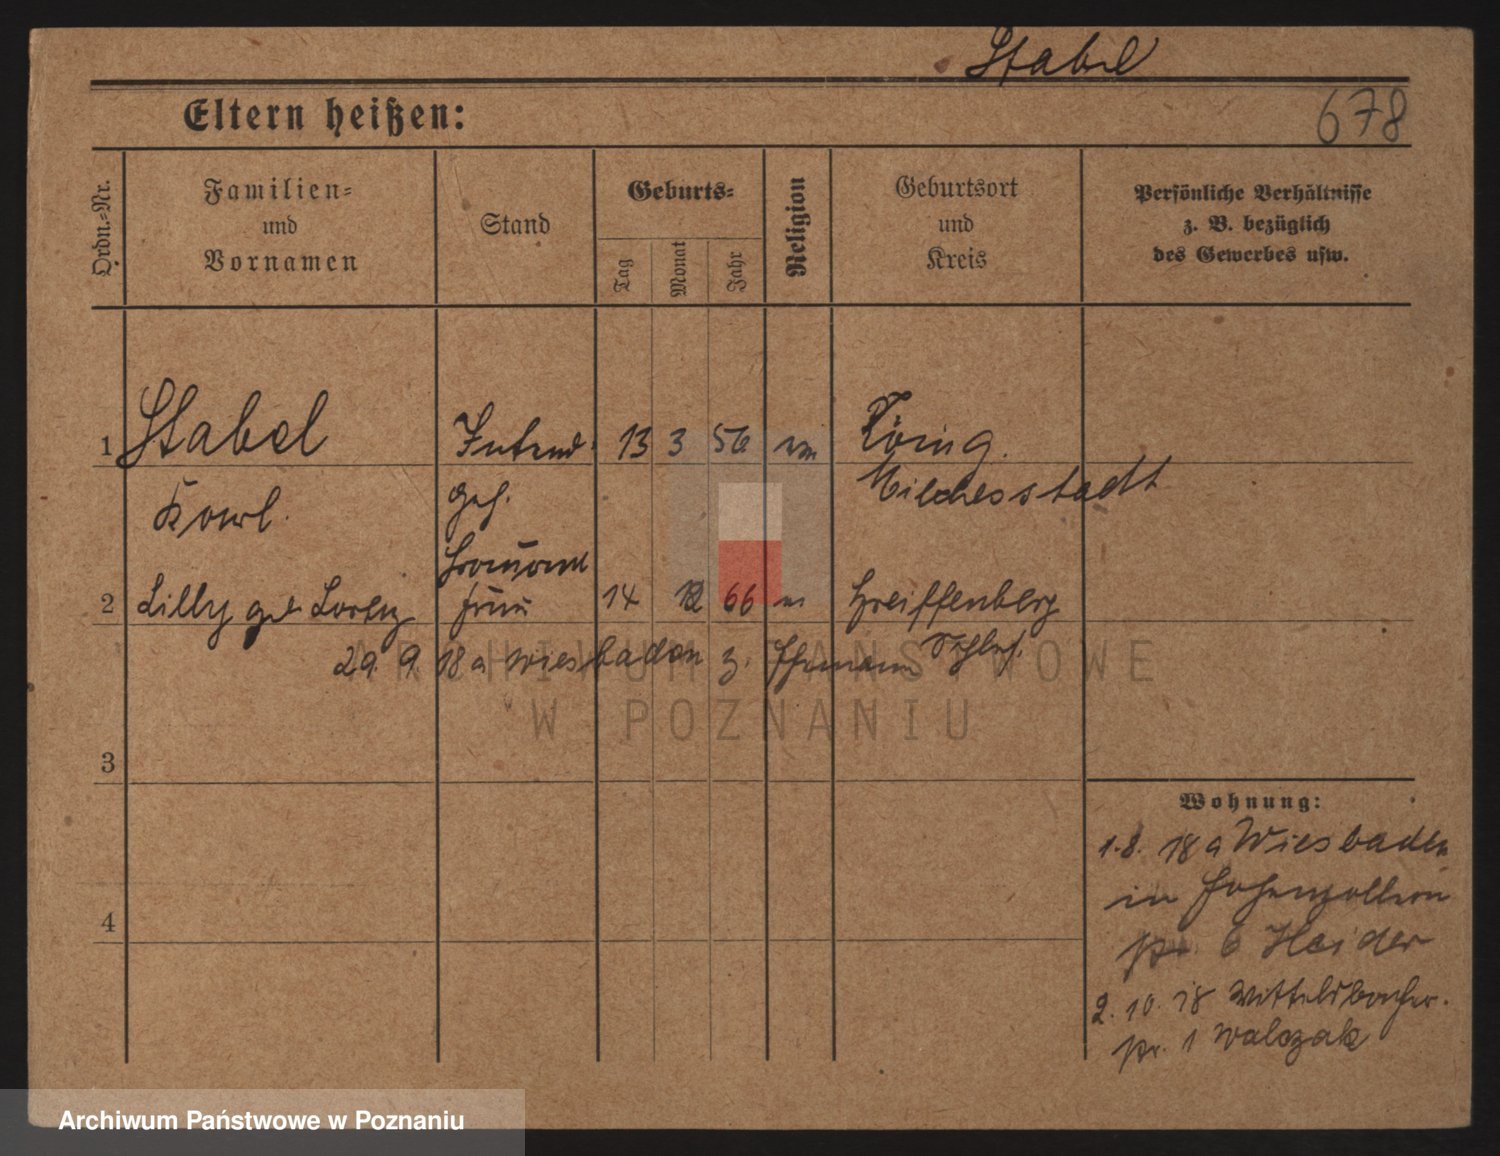 Stabel
678
Eltern heißen:
Ordn.-Nr.
Familien-
und
Vornamen
Stand
Geburts-
Tag
Monat
Jahr
Religion
Geburtsort
und
Kreis
Persönliche Verhältnisse
z. B. bezüglich
des Gewerbes usw.
1 Stabel Intend. 13 3 56 König
Karl. geh. Michelstadt
2 Lilly geb frau 14 12 66 Greiffenberg
29. 9. 18 a Wiesbaden z. Ehemann Schles.
3
4
Wohnung:
1. 8. 18 a Wiesbaden
in Hohenzollern
str. 6 Heider
2. 10. 18 Wittelsbacher.
str. 1 Walczak
ARCHIWUM PAŃSTWOWE
W POZNANIU
Archiwum Państwowe w Poznaniu